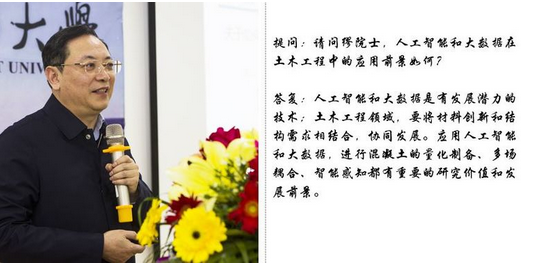 大学
T UNIVER
提问：请问缪院士，人工智能和大数据在
土木工程中的应用前景如何？
答复：人工智能和大数据是有发展潜力的
技术；土木工程领域，要将材料创新和结
构需求相结合，协同发展。应用人工智能
和大数据，进行混凝土的量化制备、多场
耦合、智能感知都有重要的研究价值和发
展前景。